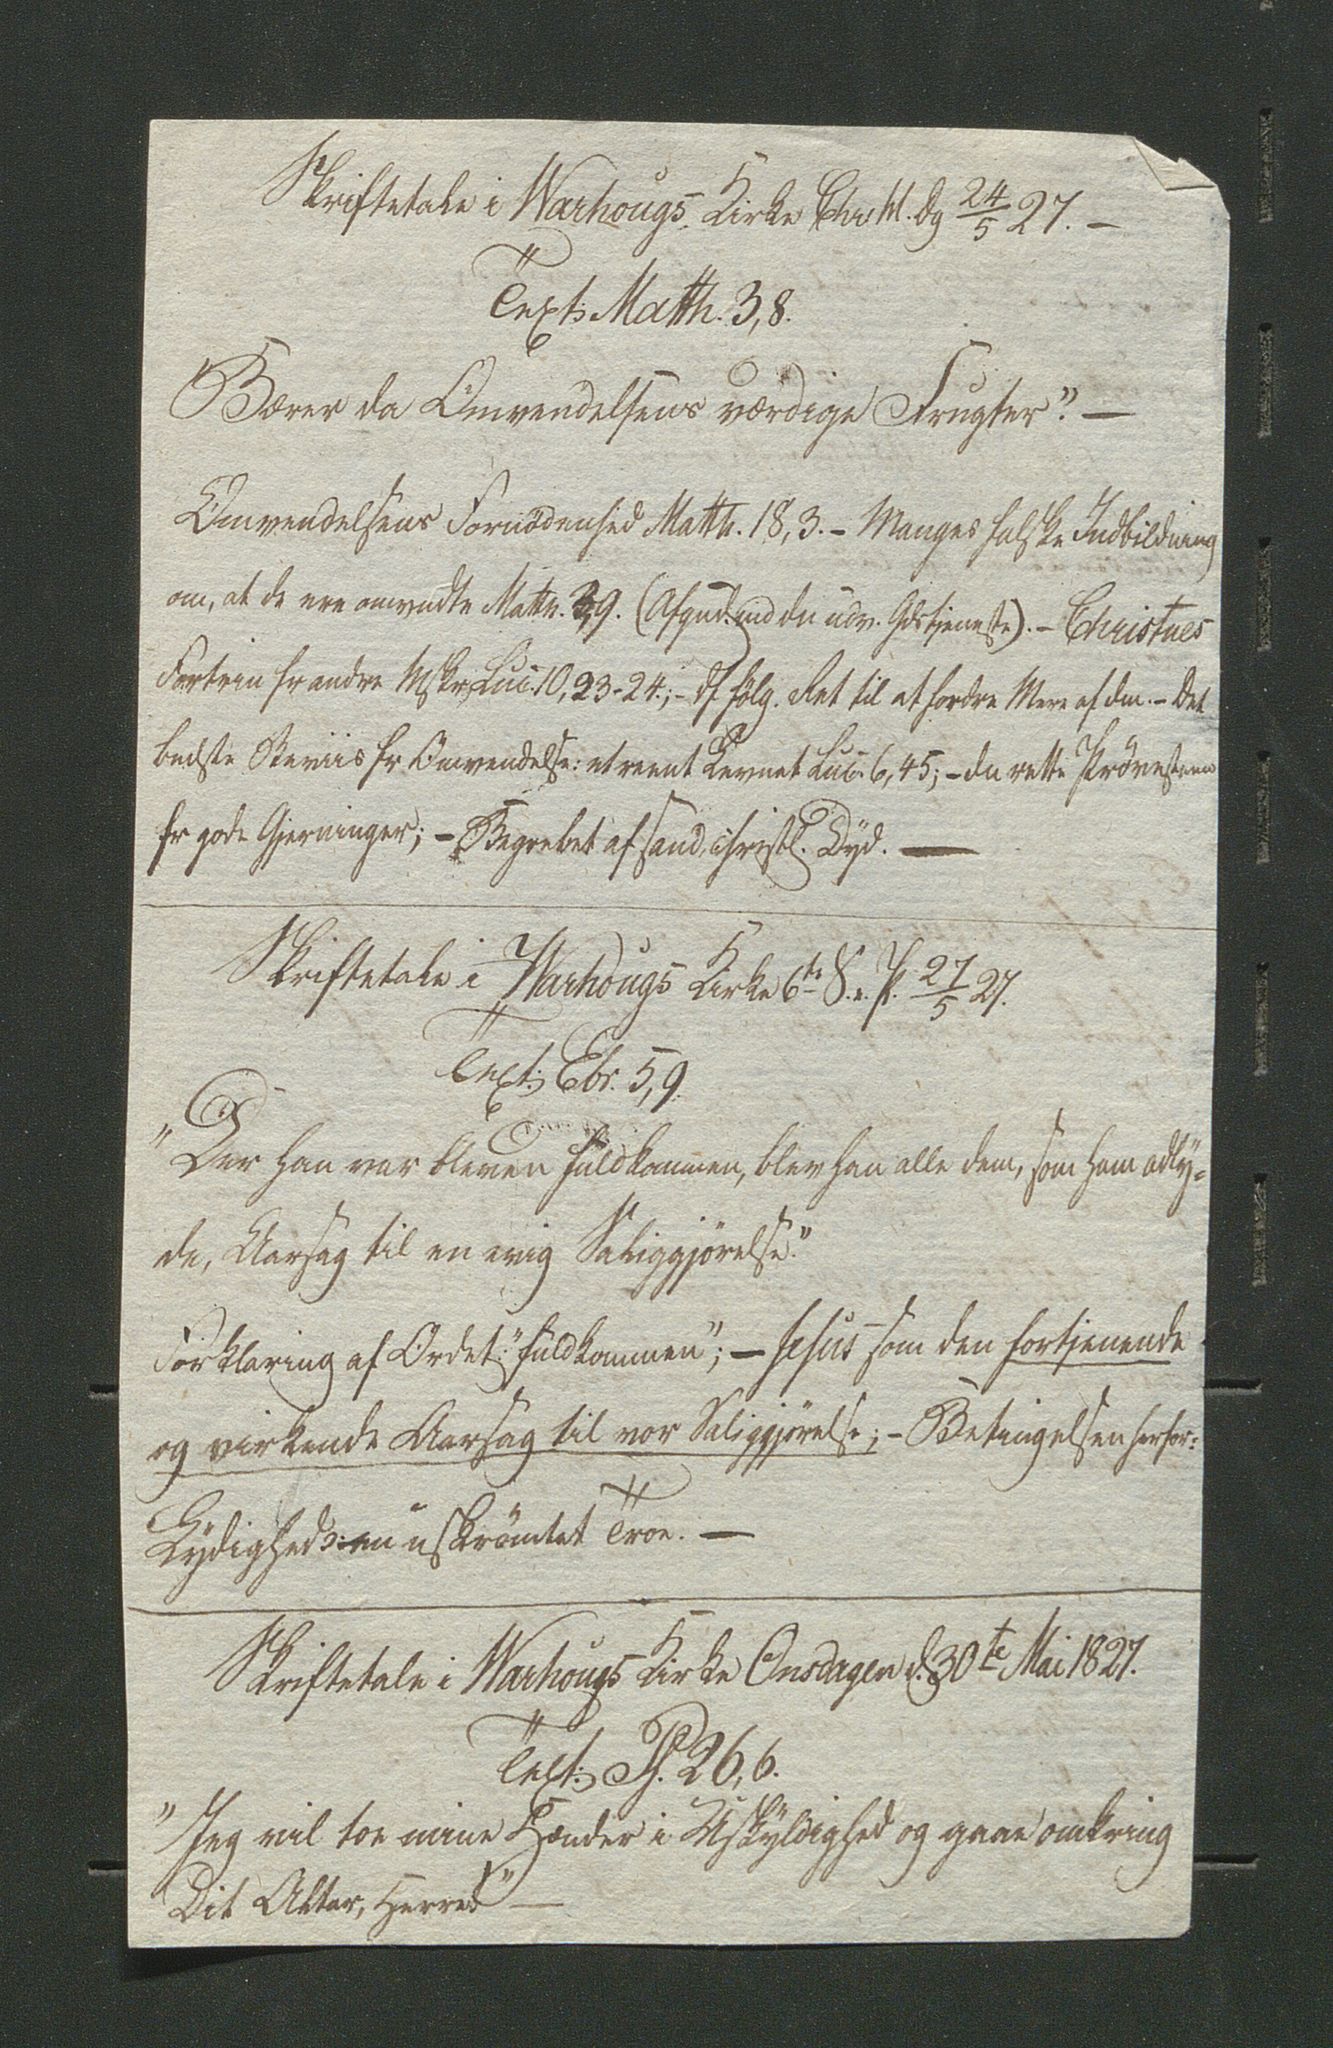 Skriftetale i Warhougs Kirke Chr. H. Dg 24/5 27. –
Text: Matth. 3, 8.
Bærer da Omvendelsens værdige Frugter". –
Omvendelsens Fornödenhed Matth. 18, 3. – Manges falske Indbildning
om, at de ere omvndte Matth. 3, 9. (Afgud. md dn udv. Gdstjeneste). – Christnes
Fortrin fr andre Mskr Luc. 10, 23-24.; – df fölg. Ret til at fordre Mere af dm. – Det
bedste Beviis fr Omvendelse: et reent Levnet Luc. 6, 45; – dn rette Prövesteen
fr gode Gjerninger; – Begrebet af sand christl. Dyd. –
Skriftetale i Warhougs Kirke 6te S. e. P. 27/5 27.
Text: Ebr. 5, 9.
"Der han var bleven fuldkommen, blev han alle dem, som ham adly-
de, Aarsag til en evig Saliggjörelse."
Forklaring af Ordet: "fuldkommen"; – Jesus som den fortjenende
og virkende Aarsag til vor Saliggjörelse; – Betingelsen herfor:
Lydighed ɔ: en uskrömtet Troe. –
Skriftetale i Warhougs Kirke Onsdagen d. 30te Mai 1827.
Text: Ps. 26, 6.
"Jeg vil toe mine Hænder i Uskyldighed og gaae omkring
Dit Alter, Herre!" –